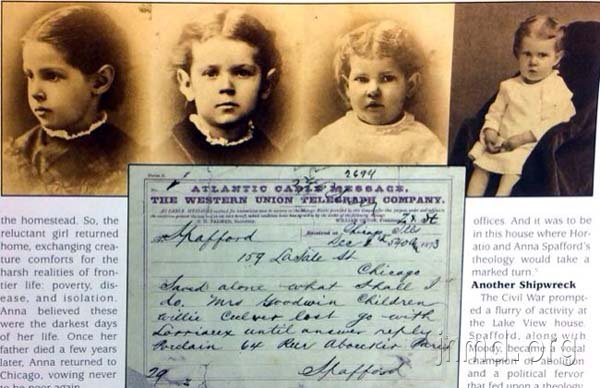 2694
ATLANTIC CABLE MESSAGE.
THE WESTERN UNION TELEGRAPH COMPANY.
Spafford
Received at Chicago Ills
Dec
159 LaSalle St
Chicago
Saved alone what shall I
do. Mrs Goodwin Children
Willie Culver lost go with
Lorriaux until answer reply
64 Rue Aboukir Paris
29 Spafford
the homestead. So, the
reluctant girl returned
home, exchanging crea-
ture comforts for the
harsh realities of fron-
tier life: poverty, dis-
ease, and isolation.
Anna believed these
were the darkest days
of her life. Once her
father died a few years
later, Anna returned to
Chicago, vowing never
to be poor again.
offices. And it was to be
in this house where Hor-
atio and Anna Spafford's
theology would take a
marked turn.
Another Shipwreck
The Civil War prompt-
ed a flurry of activity at
the Lake View house.
Spafford, along with
Moody, became a vocal
champion of abolition
and a political fervor
that fed upon a theology